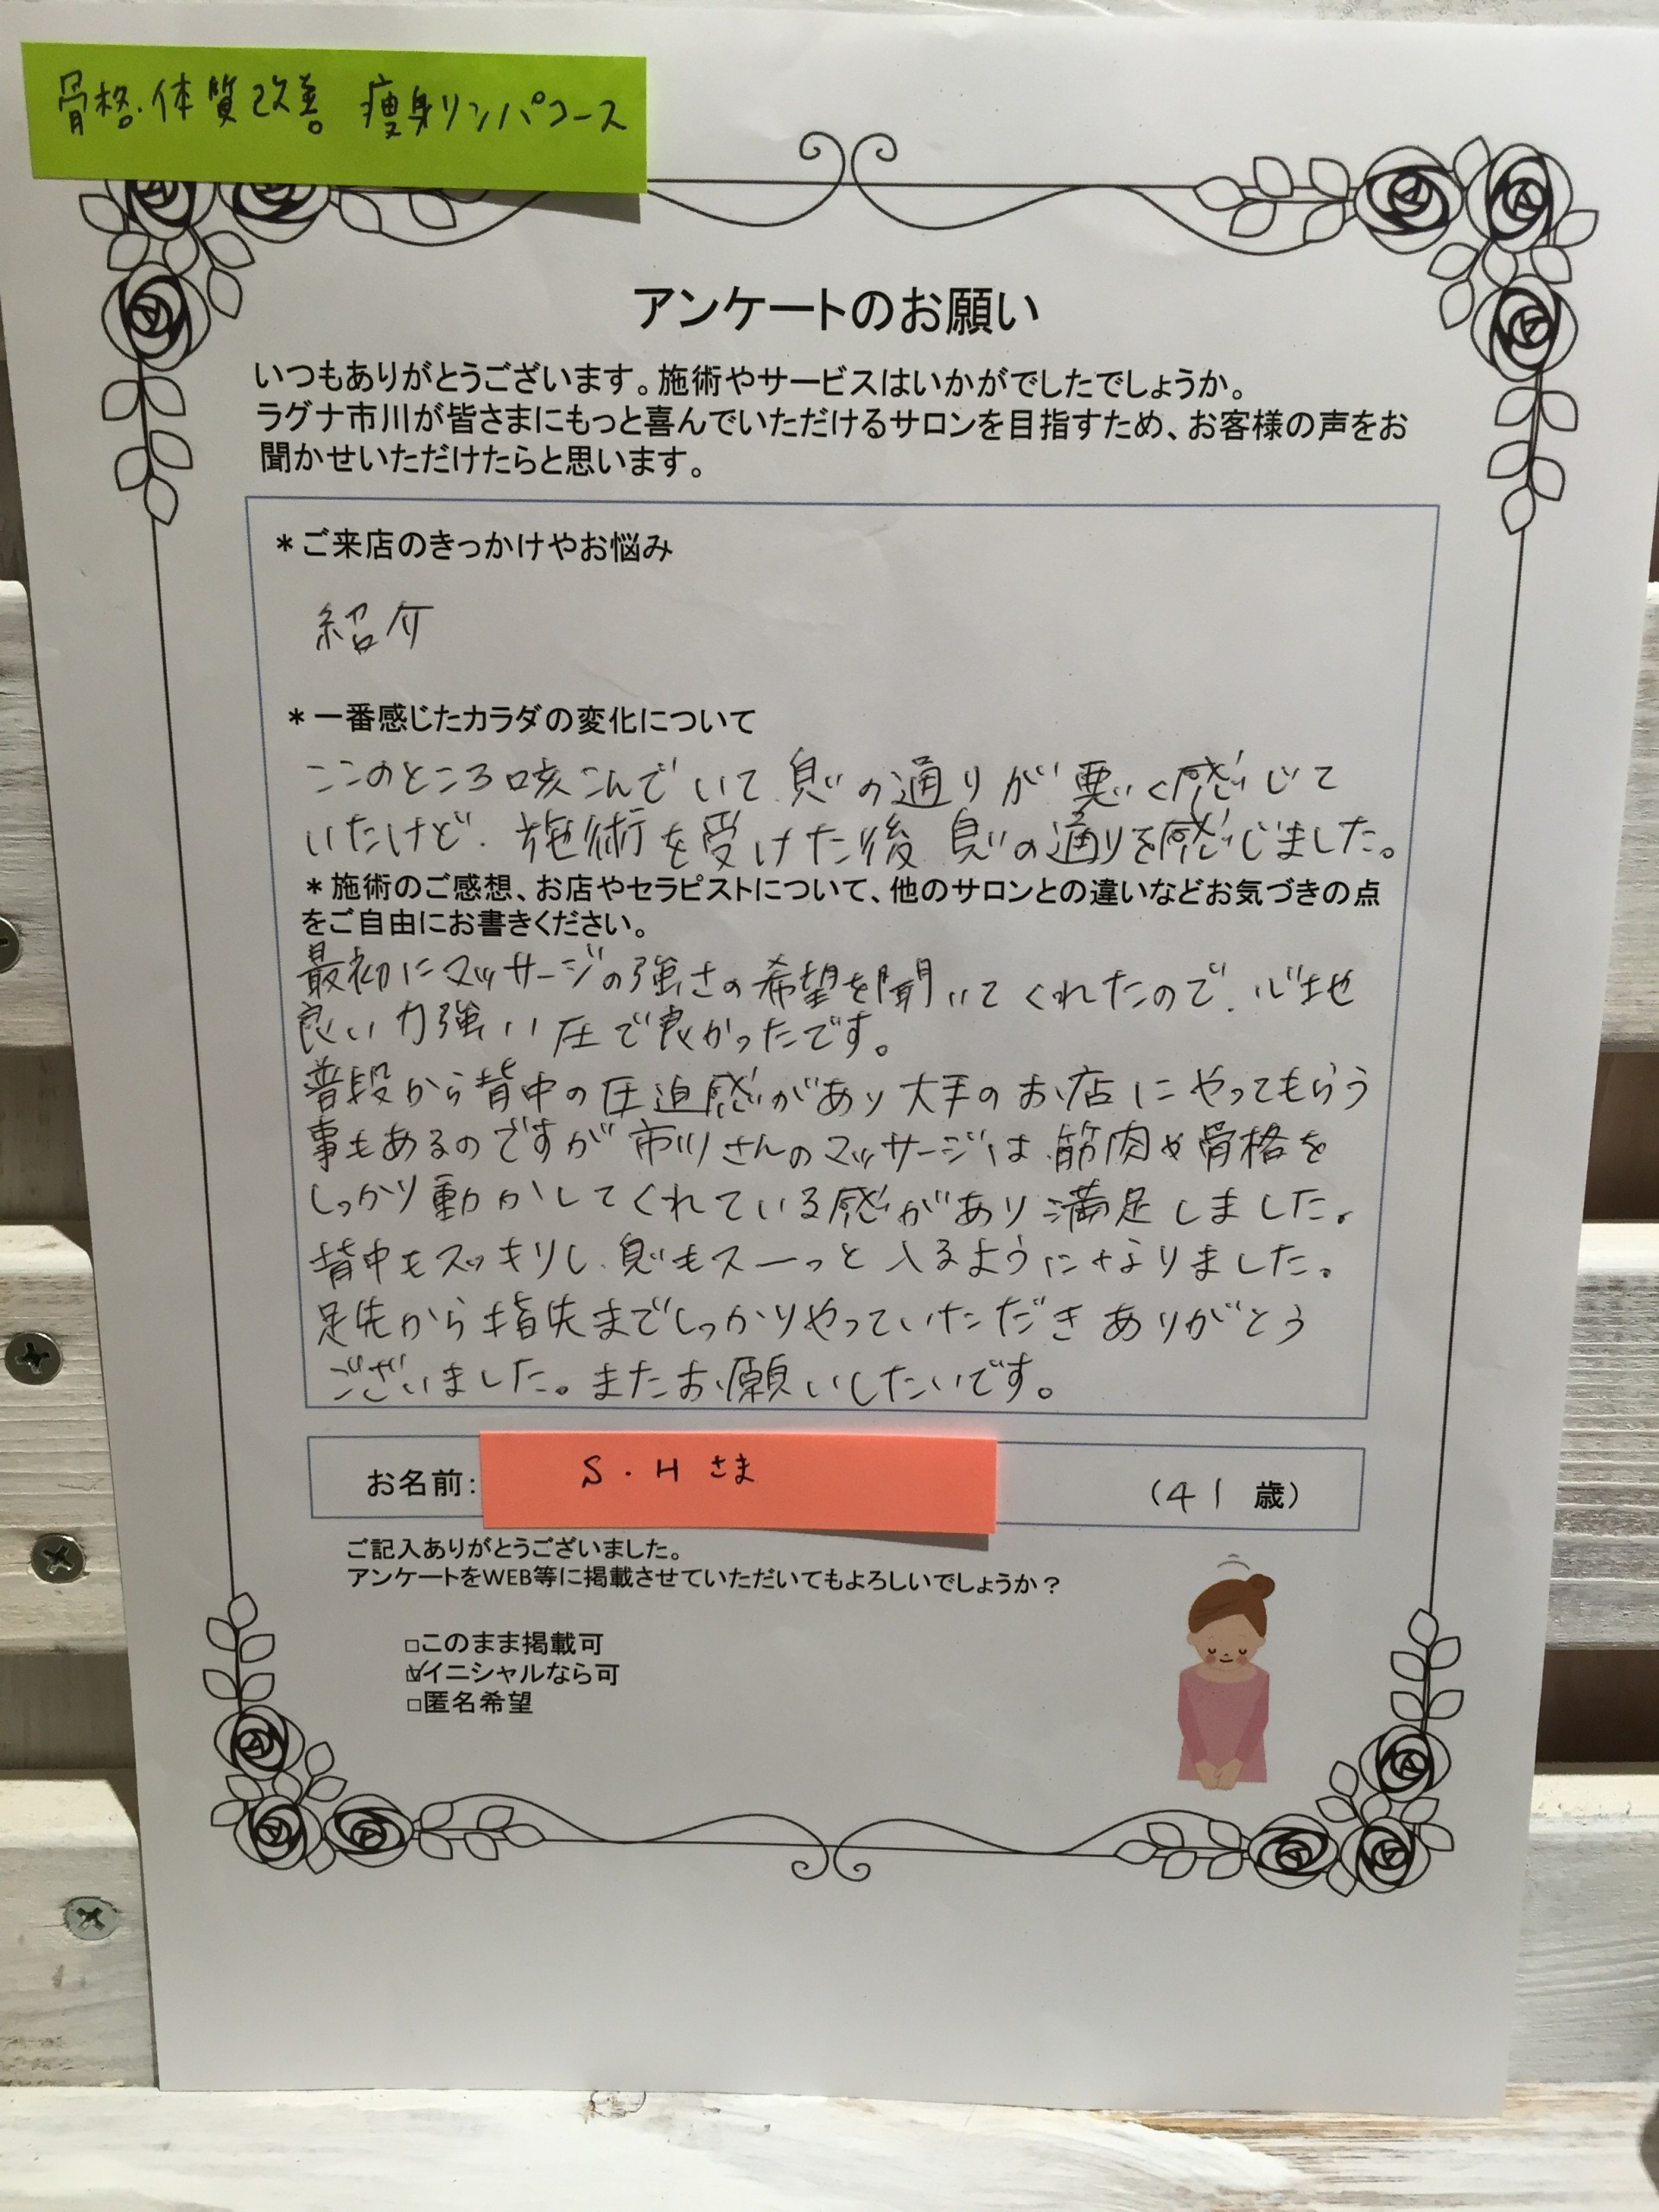 骨格・体質改善 痩身リンパコース
アンケートのお願い
いつもありがとうございます。施術やサービスはいかがでしたでしょうか。
ラグナ市川が皆さまにもっと喜んでいただけるサロンを目指すため、お客様の声をお
聞かせいただけたらと思います。
＊ご来店のきっかけやお悩み
紹介
＊一番感じたカラダの変化について
ここのところ咳こんでいて息の通りが悪く感じて
いたけど、施術を受けた後息の通りを感じました。
＊施術のご感想、お店やセラピストについて、他のサロンとの違いなどお気づきの点
をご自由にお書きください。
最初にマッサージの強さの希望を聞いてくれたので、心地
良い力強い圧で良かったです。
普段から背中の圧迫感があり大手のお店にやってもらう
事もあるのですが市川さんのマッサージは筋肉や骨格を
しっかり動かしてくれている感があり満足しました。
背中もスッキリし、息もスーっと入るようになりました。
足先から指先までしっかりやっていただきありがとう
ございました。またお願いしたいです。
お名前: S・Hさま (41 歳)
ご記入ありがとうございました。
アンケートをWEB等に掲載させていただいてもよろしいでしょうか？
□このまま掲載可
☑イニシャルなら可
□匿名希望